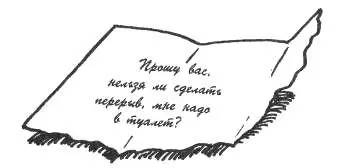 Прошу вас,
нельзя ли сделать
перерыв, мне надо
в туалет?